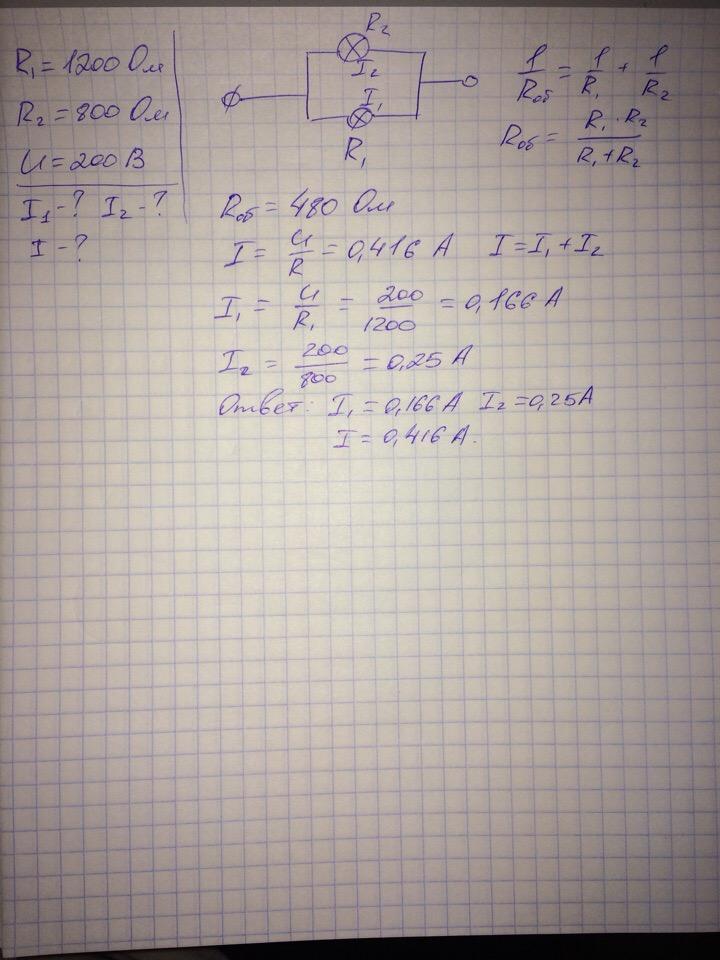 R₁ = 1200 Ом
R₂ = 800 Ом
U = 200 В
I₁ - ? I₂ - ?
I - ?
R₂
I₂
I₁
R₁
1/Rоб = 1/R₁ + 1/R₂
Rоб = R₁ · R₂ / R₁ + R₂
Rоб = 480 Ом
I = U/R = 0,416 А I = I₁ + I₂
I₁ = U/R₁ = 200/1200 = 0,166 А
I₂ = 200/800 = 0,25 А
Ответ: I₁ = 0,166 А I₂ = 0,25 А
I = 0,416 А.